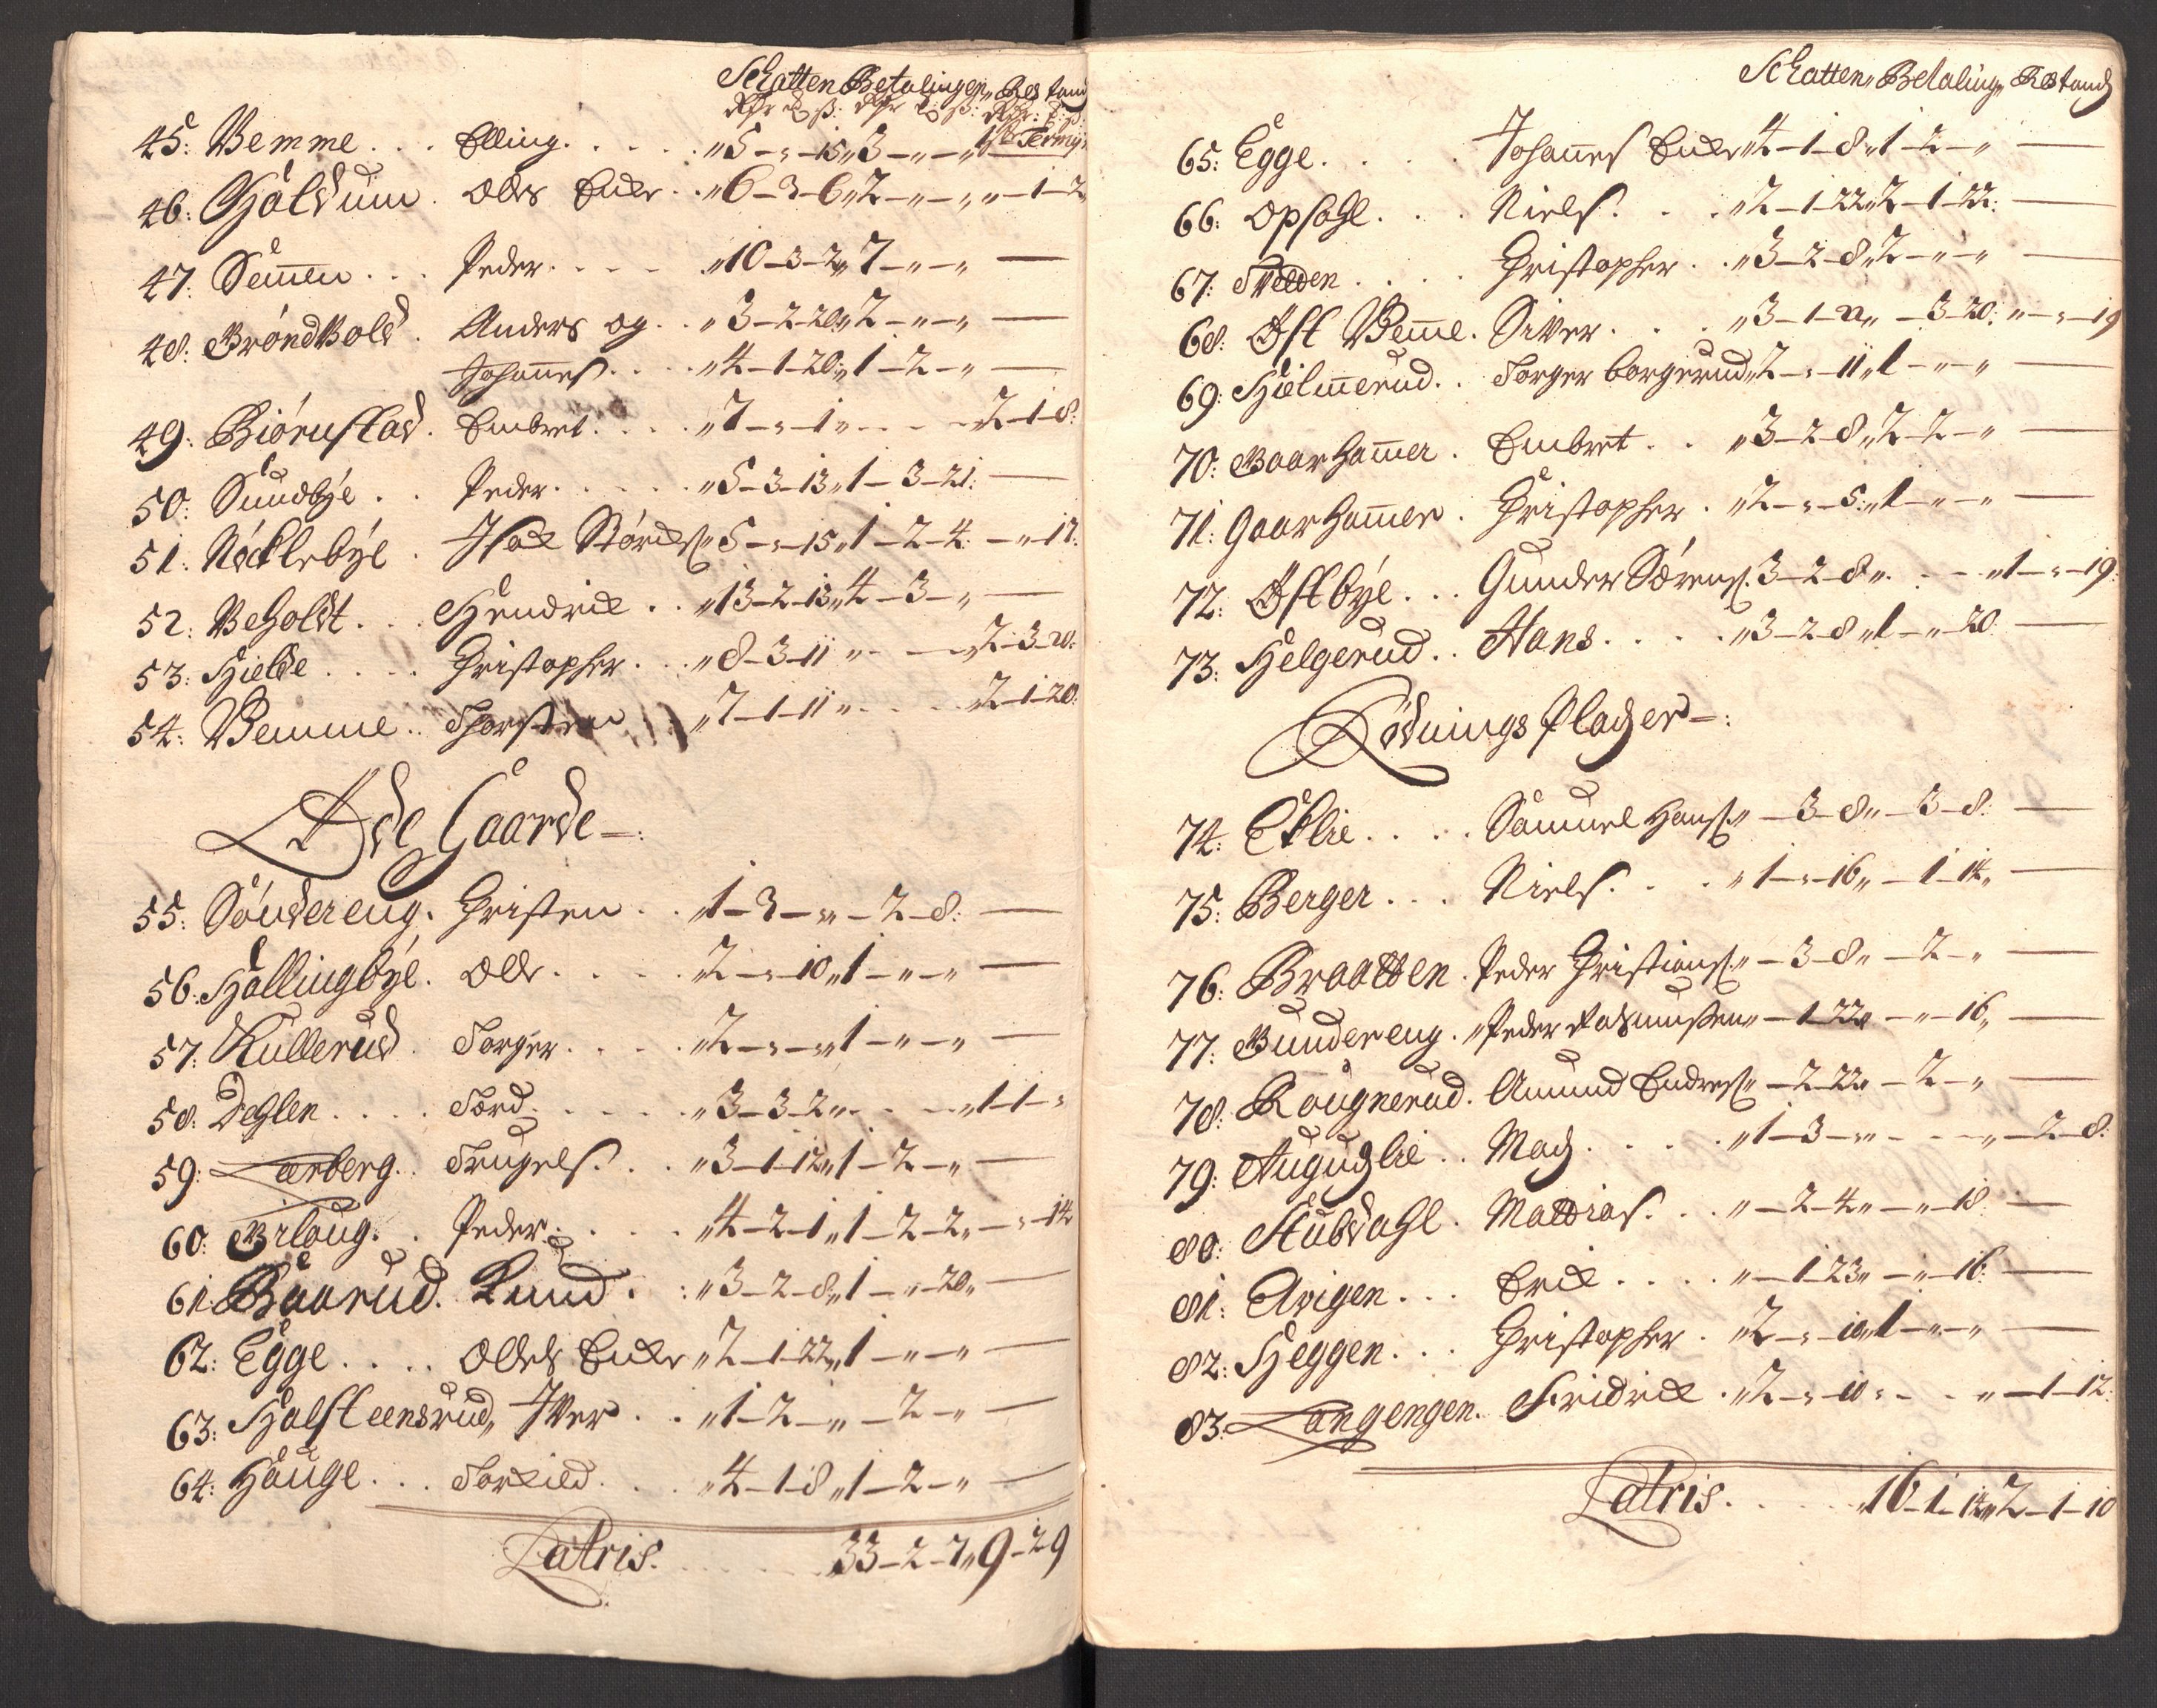 Schatten Betalingen Restand
Rdr ß: Rdr ß: Rdr: ß:
45: Vemme . . . Elling . . . . . „5-„-15„3-„-„ 1ste Termin
46: Hjoldum . Oles Encke . . „6-3-6„2-„-„„-1-2
47: Semen . . . Peder . . . . „10-3-2„7-„-„ —
48: Gröndvold . Anders og . . „3-2-20„2-„-„ —
Johannes . . . . „4-1-20„1-2-„ —
49: Biörnstad . Embret . . . . „7-„-1„- - - -2-1-8:
50: Sundbÿe . . Peder . . . . . „5-3-13„1-3-21: —
51: Nöcklebÿe . „5-„-15„1-2-4-„-17:
52: Veholdt . . . Hendrick . . „13-2-13„4-3-„ —
53: Hielde . . . . Christopher . . „8-3-11„- -„2-3-20:
54: Vemme . . Thorsten „7-1-11„ . . . . 2-1-20:
Øde Gaarde —:
55: Söndereng . Christen . . „1-3-„„-2-8: —
56: Hallingbÿe . Oele . . . . . „2-„-10„1-„-„ —
57: Kullerud . Torger . . . . „2-„-„„1-„-„ —
58: Deglen . . . . Tord . . . . . „3-3-2„- . . -„1-1-„
59: Lærberg . . Trugels . . . „3-1-12„1-2-„ —
60: Ørloug . . Peder . . . . „4-2-1„1-2-2„-„-14
61: Baarud . Knud . . „3-2-8„1-„-20„ —
62: Egge . . . . Oeles Encke „2-1-22„1-„-„ —
63: Halsteensrud„ Iver . . „1-2-„„-2-„ —
64: Houge . . . Torkield . . . „4-1-8„1-2-„ —
Latris . . . . . . 33-2-7„9-29
Schatten„ Betaling„ Restand
65: Egge . . . . Johannes Encke „4-1-8„1-2-„ —
66: Opsahl . . . Niels . . . „2-1-22„2-1-22: —
67: Tvedden . . . . Christopher . . „3-2-8„2-„-„ —
68: Øst Vemme . Siver . . . „3-1-22„-3-20:„-„-19
69: Hielmerud . . Torger borgerud „2-„-11„1-„-„ —
70: Baarhammer . Embret . . „3-2-8„2-2-„ —
71: Gaarhammer . Christopher . „2-„-5:„1-„-„ —
72: Østbÿe . . . Gunder Sörens. 3-2-8„. - -„1-„-19:
73: Helgerud . . Hans . . . . „3-2-8„1-„-20 —
Rödnings Pladser —:
74: Eklie . . . . Samuel Hanss„-3-8„-3-8: —
75: Berger . . . Niels . . . „1-„-16„-1-14„ —
76: Braatten . Peder Christians„-3-8„-2-„ —
77: Bundereng . „Peder Rasmussen„-1-22„-„-16„ —
78: Rougnerud . Amund Endres„-2-22„-2-„ —
79: Augudslie . . Mads . . . . . „1-3-„„- - - -„-2-8:
80: Stubdahl . Mattias . . „-2-4„-„-18: —
81: Avigen . . . Erick . . . . „-1-23„-„-16: —
82: Heggen . . . Christopher . „2-„-10„1-„-„ —
83: Langengen . Fridrick . „2-„-10„- . -„-1-12:
Latris . . . . . 16-1-14„2-1-10